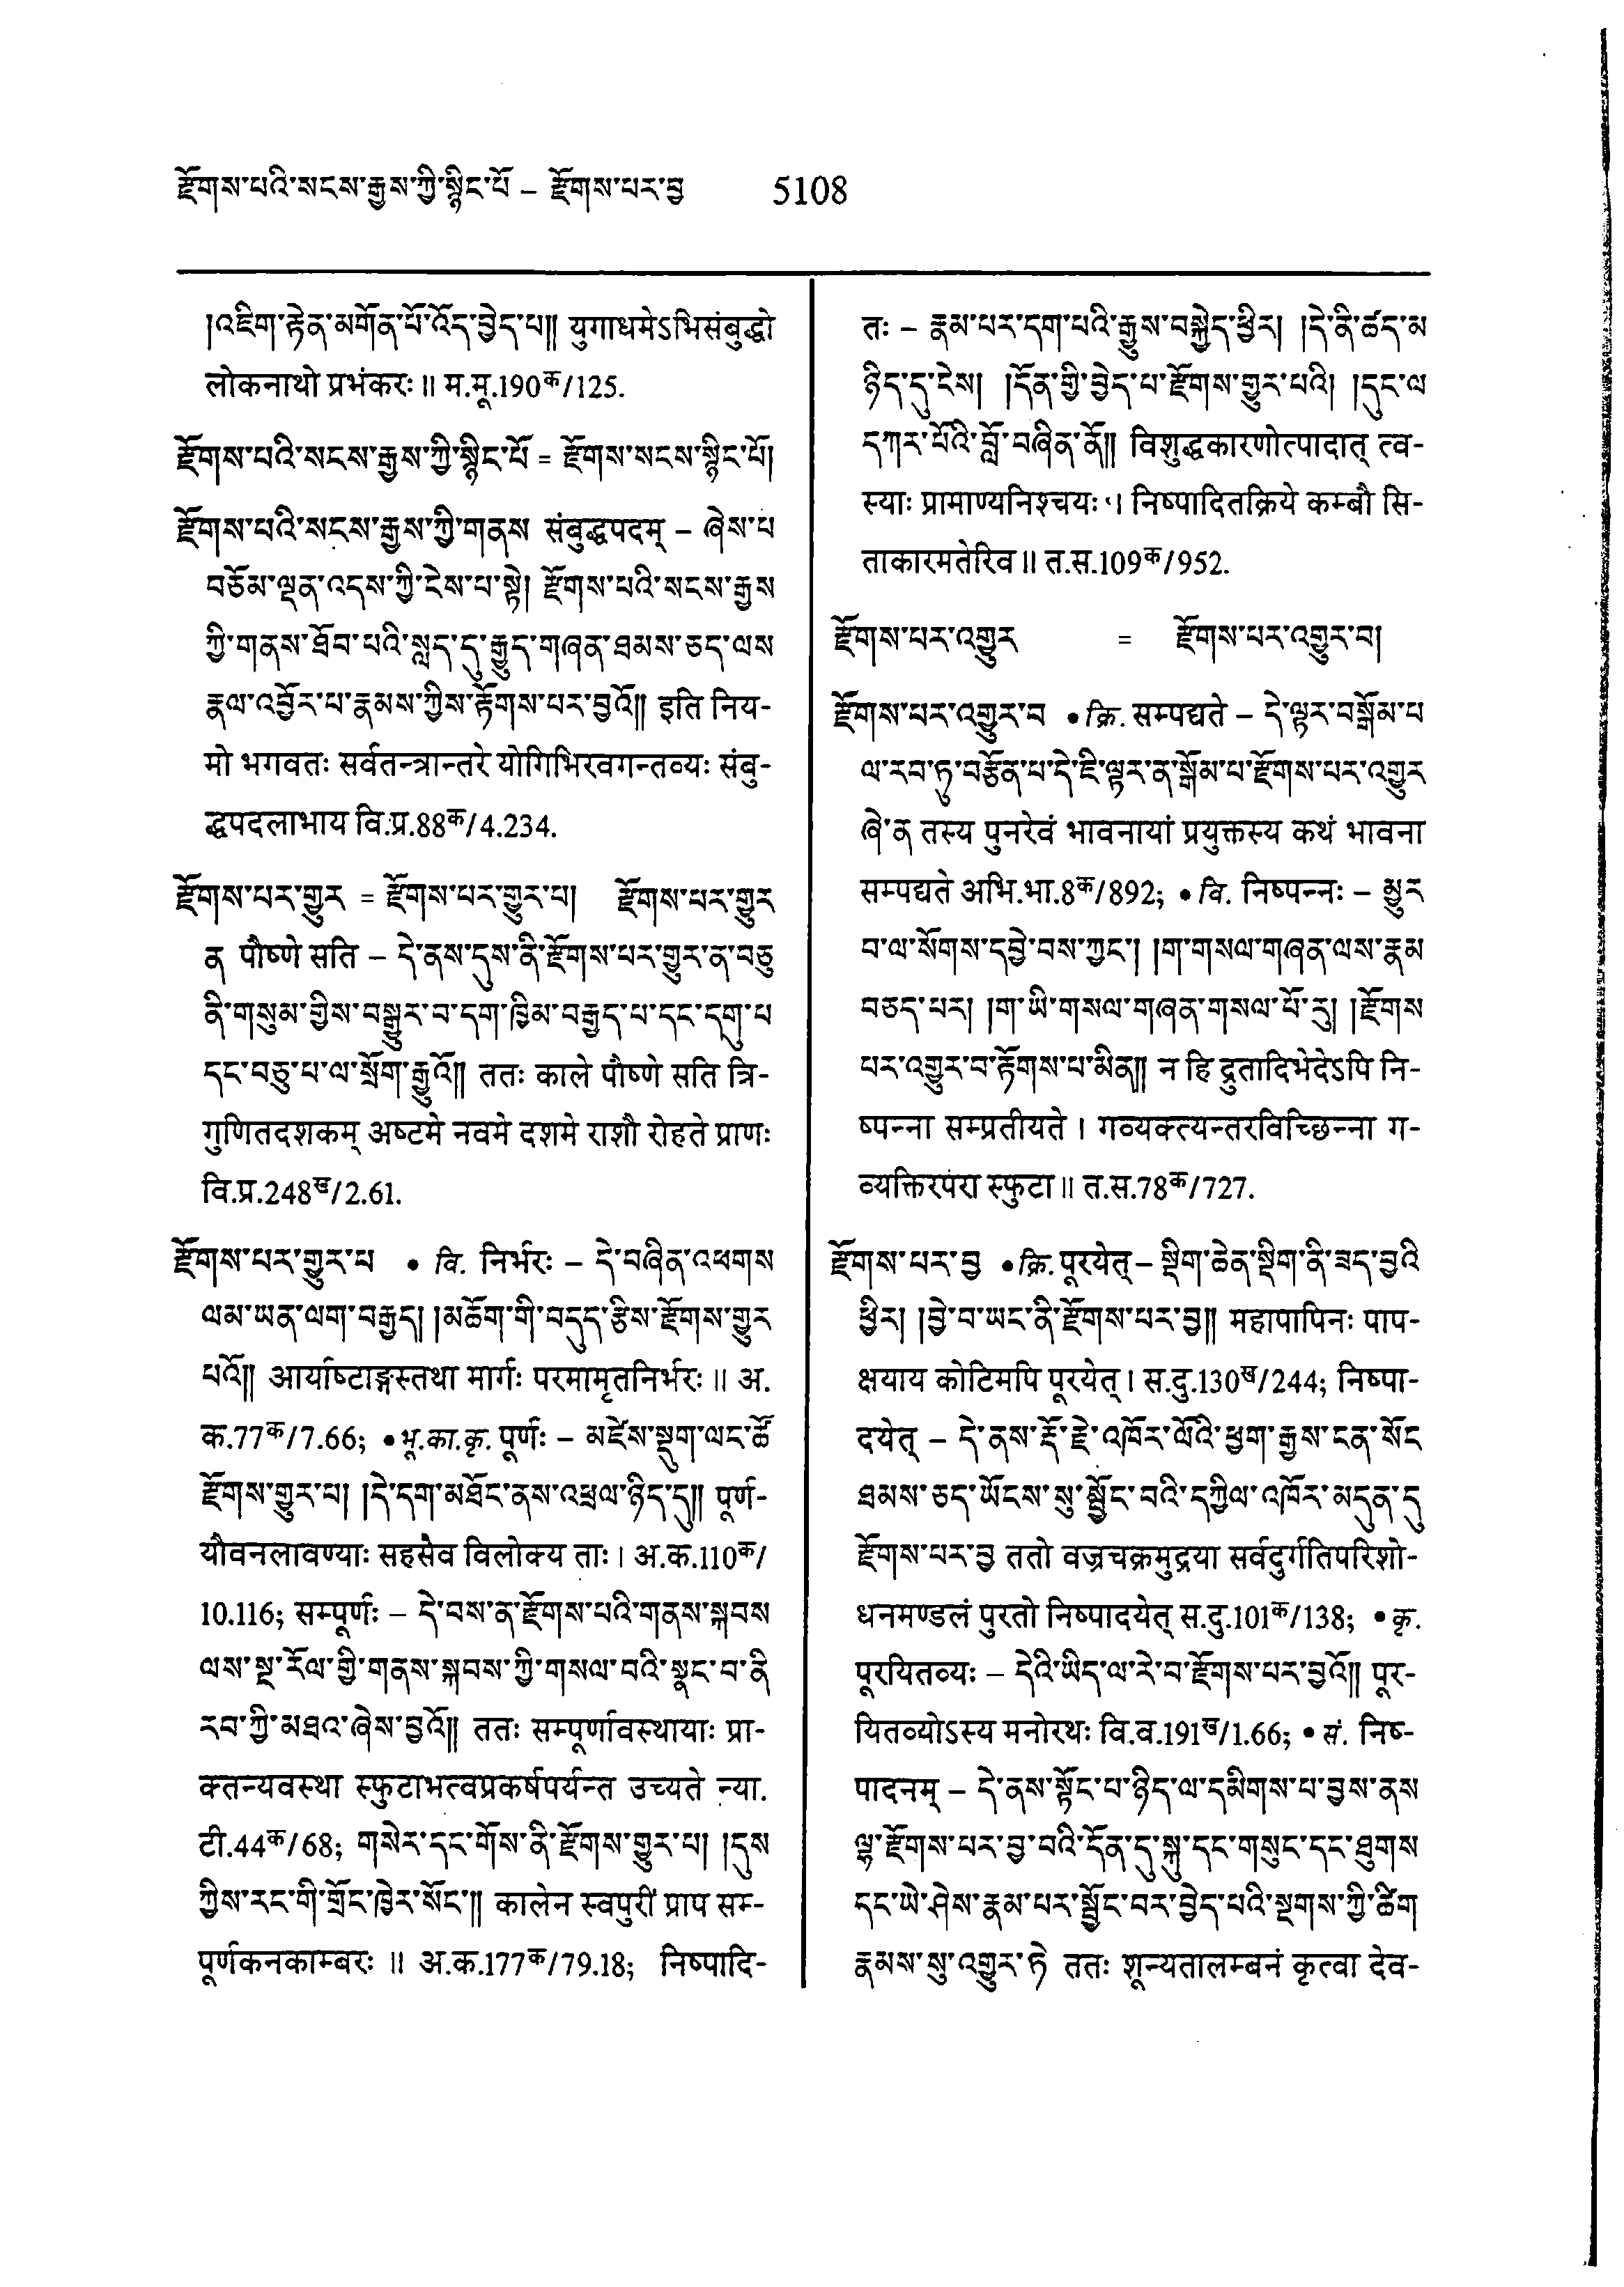 རྫོགས་པའི་སངས་རྒྱས་ཀྱི་སྙིང་པོ – རྫོགས་པར་བྱ 5108
།འཇིག་རྟེན་མགོན་པོ་འོད་བྱེད་པ།། युगाधमेऽभिसंबुद्धो
लोकनाथो प्रभंकरः ॥ म.मू.190क/125.
རྫོགས་པའི་སངས་རྒྱས་ཀྱི་སྙིང་པོ = རྫོགས་སངས་སྙིང་པོ།
རྫོགས་པའི་སངས་རྒྱས་ཀྱི་གནས संबुद्धपदम् – ཞེས་པ
བཅོམ་ལྡན་འདས་ཀྱི་ངེས་པ་སྟེ། རྫོགས་པའི་སངས་རྒྱས
ཀྱི་གནས་ཐོབ་པའི་སླད་དུ་རྒྱུད་གཞན་ཐམས་ཅད་ལས
རྣལ་འབྱོར་པ་རྣམས་ཀྱིས་རྟོགས་པར་བྱའོ།། इति निय-
मो भगवतः सर्वतन्त्रान्तरे योगिभिरवगन्तव्यः संबु-
द्धपदलाभाय वि.प्र.88क/4.234.
རྫོགས་པར་གྱུར = རྫོགས་པར་གྱུར་པ། རྫོགས་པར་གྱུར
ན पौष्णे सति – དེ་ནས་དུས་ནི་རྫོགས་པར་གྱུར་ན་བཅུ
ནི་གསུམ་གྱིས་བསྒྱུར་བ་དག་ཁྱིམ་བརྒྱད་པ་དང་དགུ་པ
དང་བཅུ་པ་ལ་སྲོག་རྒྱུའོ།། ततः काले पौष्णे सति त्रि-
गुणितदशकम् अष्टमे नवमे दशमे राशौ रोहते प्राणः
वि.प्र.248ख/2.61.
རྫོགས་པར་གྱུར་པ • वि. निर्भरः – དེ་བཞིན་འཕགས
ལམ་ཡན་ལག་བརྒྱད། །མཆོག་གི་བདུད་རྩིས་རྫོགས་གྱུར
པའོ།། आर्याष्टाङ्गस्तथा मार्गः परमामृतनिर्भरः ॥ अ.
क.77क/7.66; • भू.का.कृ. पूर्णः – མཛེས་སྡུག་ལང་ཚོ
རྫོགས་གྱུར་པ། །དེ་དག་མཐོང་ནས་འཕྲལ་ཉིད་དུ།། पूर्ण-
यौवनलावण्याः सहसैव विलोक्य ताः । अ.क.110क/
10.116; सम्पूर्णः – དེ་བས་ན་རྫོགས་པའི་གནས་སྐབས
ལས་སྔ་རོལ་གྱི་གནས་སྐབས་ཀྱི་གསལ་བའི་སྣང་བ་ནི
རབ་ཀྱི་མཐའ་ཞེས་བྱའོ།། ततः सम्पूर्णावस्थायाः प्रा-
क्तन्यवस्था स्फुटाभत्वप्रकर्षपर्यन्त उच्यते न्या.
टी.44क/68; གསེར་དང་གོས་ནི་རྫོགས་གྱུར་པ། །དུས
ཀྱིས་རང་གི་གྲོང་ཁྱེར་སོང་།། कालेन स्वपुरीं प्राप सम्-
पूर्णकनकाम्बरः ॥ अ.क.177क/79.18; निष्पादि-
तः – རྣམ་པར་དག་པའི་རྒྱུས་བསྐྱེད་ཕྱིར། །དེ་ནི་ཚད་མ
ཉིད་དུ་ངེས། །དོན་གྱི་བྱེད་པ་རྫོགས་གྱུར་པའི། །དུང་ལ
དཀར་པོའི་བློ་བཞིན་ནོ།། विशुद्धकारणोत्पादात् त्व-
स्याः प्रामाण्यनिश्चयः । निष्पादितक्रिये कम्बौ सि-
ताकारमतेरिव ॥ त.स.109क/952.
རྫོགས་པར་འགྱུར = རྫོགས་པར་འགྱུར་བ།
རྫོགས་པར་འགྱུར་བ • क्रि. सम्पद्यते – དེ་ལྟར་བསྒོམ་པ
ལ་རབ་ཏུ་བརྩོན་པ་དེ་ཇི་ལྟར་ན་སྒོམ་པ་རྫོགས་པར་འགྱུར
ཞེ་ན तस्य पुनरेवं भावनायां प्रयुक्तस्य कथं भावना
सम्पद्यते अभि.भा.8क/892; • वि. निष्पन्नः – མྱུར
བ་ལ་སོགས་དབྱེ་བས་ཀྱང་། །ག་གསལ་གཞན་ལས་རྣམ
བཅད་པར། །ག་ཡི་གསལ་གཞན་གསལ་པོ་རུ། །རྫོགས
པར་འགྱུར་བ་རྟོགས་པ་མིན།། न हि द्रुतादिभेदेऽपि नि-
ष्पन्ना सम्प्रतीयते । गव्यक्त्यन्तरविच्छिन्ना ग-
व्यक्तिरपरा स्फुटा ॥ त.स.78क/727.
རྫོགས་པར་བྱ • क्रि. पूरयेत् – སྡིག་ཆེན་སྡིག་ནི་ཟད་བྱའི
ཕྱིར། །བྱེ་བ་ཡང་ནི་རྫོགས་པར་བྱ།། महापापिनः पाप-
क्षयाय कोटिमपि पूरयेत् । स.दु.130ख/244; निष्पा-
दयेत् – དེ་ནས་རྡོ་རྗེ་འཁོར་ལོའི་ཕྱག་རྒྱས་ངན་སོང
ཐམས་ཅད་ཡོངས་སུ་སྦྱོང་བའི་དཀྱིལ་འཁོར་མདུན་དུ
རྫོགས་པར་བྱ ततो वज्रचक्रमुद्रया सर्वदुर्गतिपरिशो-
धनमण्डलं पुरतो निष्पादयेत् स.दु.101क/138; • कृ.
पूरयितव्यः – དེའི་ཡིད་ལ་རེ་བ་རྫོགས་པར་བྱའོ།། पूर-
यितव्योऽस्य मनोरथः वि.व.191ख/1.66; • सं. निष्-
पादनम् – དེ་ནས་སྟོང་པ་ཉིད་ལ་དམིགས་པ་བྱས་ནས
ལྷ་རྫོགས་པར་བྱ་བའི་དོན་དུ་སྐུ་དང་གསུང་དང་ཐུགས
དང་ཡེ་ཤེས་རྣམ་པར་སྦྱོང་བར་བྱེད་པའི་སྔགས་ཀྱི་ཚིག
རྣམས་སུ་འགྱུར་ཏེ ततः शून्यतालम्बनं कृत्वा देव-